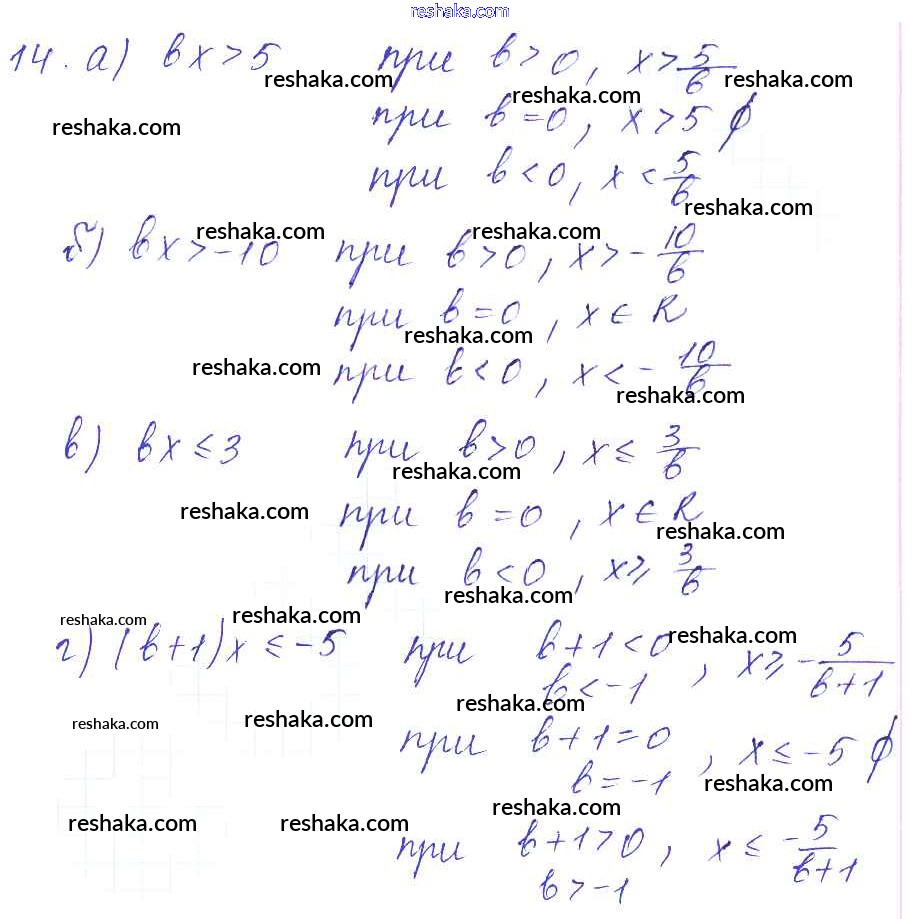 reshaka.com
14. а) вx > 5 при в > 0, x > 5/в
reshaka.com reshaka.com reshaka.com
reshaka.com при в = 0, x > 5 ∅
при в < 0, x < 5/в
reshaka.com
б) вx > -10 при в > 0, x > - 10/в
reshaka.com reshaka.com
при в = 0, x ∈ R
reshaka.com
reshaka.com при в < 0, x < - 10/в
reshaka.com
в) вx ≤ 3 при в > 0, x ≤ 3/в
reshaka.com
reshaka.com при в = 0, x ∈ R
reshaka.com
при в < 0, x ≥ 3/в
reshaka.com
reshaka.com reshaka.com
г) (в+1)x ≤ -5 при в+1 < 0, x ≥ - 5/в+1
reshaka.com
в < -1
reshaka.com reshaka.com reshaka.com
при в+1=0, x ≤ -5 ∅
в = -1
reshaka.com
reshaka.com
reshaka.com reshaka.com
при в+1>0, x ≤ -5/в+1
в > -1